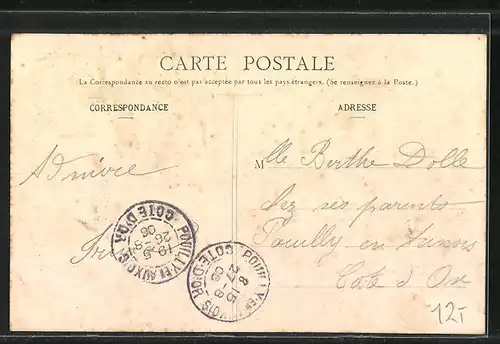 CARTE POSTALE
La Correspondance au recto n'est pas acceptée par tous les pays étrangers. (Se renseigner à la Poste.)
CORRESPONDANCE
ADRESSE
Mlle Berthe Dolle
chez ses parents
Pouilly en Auxois
Cote d'Or
POUILLY-EN-AUXOIS
COTE-D'OR
POUILLY-EN-AUXOIS
COTE-D'OR
8 15
27 8
12-